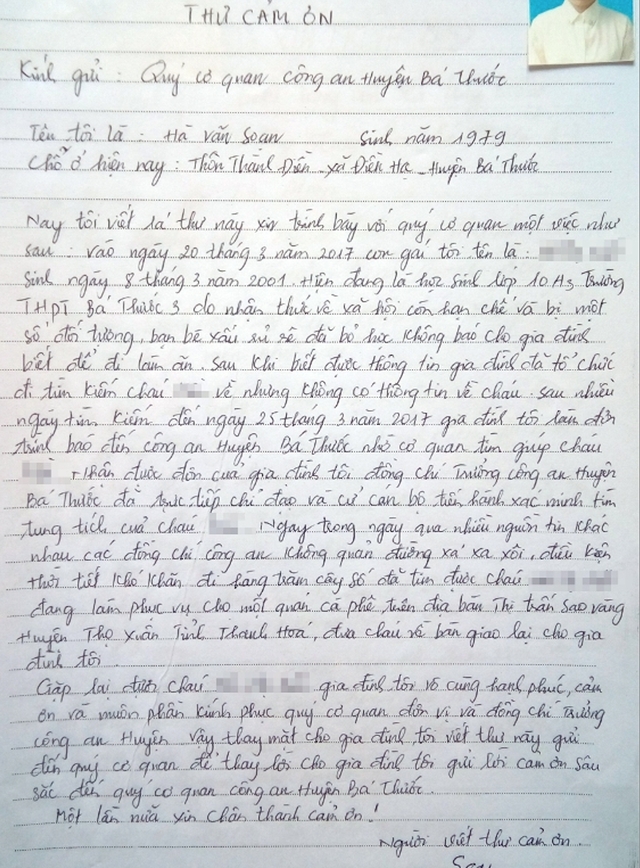 THƯ CẢM ƠN
Kính gửi : Quý cơ quan công an Huyện Bá Thước
Tên tôi là : Hà Văn Soan Sinh năm 1979
Chỗ ở hiện nay : Thôn Thành Điền - xã Điền Hạ - Huyện Bá Thước
Nay tôi viết lá thư này xin trình bày với quý cơ quan một việc như
sau : vào ngày 20 tháng 3 năm 2017 con gái tôi tên là :
Sinh ngày 8 tháng 3 năm 2001. Hiện đang là học sinh lớp 10A3 Trường
THPT Bá Thước 3 do nhận thức về xã hội còn hạn chế và bị một
số đối tượng, bạn bè xấu rủ rê đã bỏ học không báo cho gia đình
biết để đi làm ăn. sau khi biết được thông tin gia đình đã tổ chức
đi tìm kiếm cháu về nhưng không có thông tin về cháu. sau nhiều
ngày tìm kiếm đến ngày 25 tháng 3 năm 2017 gia đình tôi làm đơn
trình báo đến công an Huyện Bá Thước nhờ cơ quan tìm giúp cháu
. Nhận được đơn của gia đình tôi đồng chí Trưởng công an Huyện
Bá Thước đã trực tiếp chỉ đạo và cử cán bộ tiến hành xác minh tìm
tung tích của cháu . Ngay trong ngày qua nhiều nguồn tin khác
nhau các đồng chí công an không quản đường xá xa xôi, điều kiện
thời tiết khó khăn đi hàng trăm cây số đã tìm được cháu
đang làm phục vụ cho một quán cà phê trên địa bàn Thị trấn sao vàng
Huyện Thọ Xuân Tỉnh Thanh Hoá, đưa cháu về bàn giao lại cho gia
đình tôi.
Gặp lại được cháu gia đình tôi vô cùng hạnh phúc, cảm
ơn và muôn phần kính phục quý cơ quan đơn vị và đồng chí Trưởng
công an Huyện vậy thay mặt cho gia đình, tôi viết thư này gửi
đến quý cơ quan để thay lời cho gia đình tôi gửi lời cảm ơn sâu
sắc đến quý cơ quan công an Huyện Bá Thước.
Một lần nữa xin chân thành cảm ơn !
Người viết thư cảm ơn.